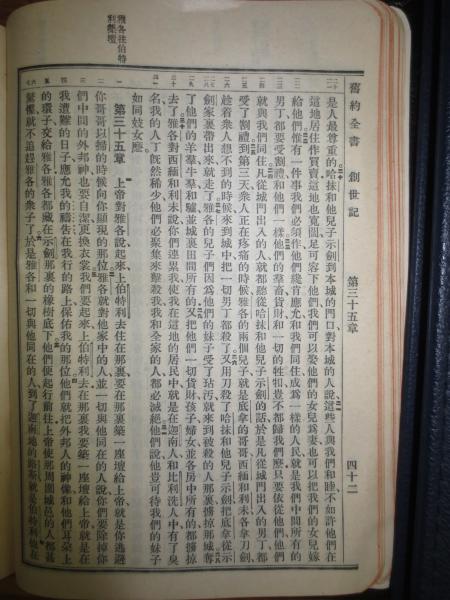 舊約全書 創世記 第三十五章 四十二
是人最尊重的哈抹和他兒子示劍到本城的門口對本城的人說這些人與我們和睦不如許他們在
這地居住作買賣這地也寬闊足可容下他們我們可以娶他們的女兒為妻也可以把我們的女兒嫁
給他們惟有一件事我們必須作他們纔肯應允和我們同住成為一樣的人民就是我們中間所有的
男丁都要受割禮和他們一樣他們的羣畜貨財和一切的牲口豈不都歸我們麼只要依從他們他們
就與我們同住凡從城門出入的人就都聽從哈抹和他兒子示劍的話於是凡從城門出入的男丁都
受了割禮到第三天眾人正在疼痛的時候雅各的兩個兒子就是底拿的哥哥西緬和利未各拿刀劍
趁着眾人想不到的時候來到城中把一切男丁都殺了又用刀殺了哈抹和他兒子示劍把底拿從示
劍家裏帶出來就走了雅各的兒子們因為他們的妹子受了玷污就來到被殺的人那裏擄掠那城奪
了他們的羊羣牛羣和驢並城裏田間所有的又把他們一切貨財孩子婦女並各房中所有的都擄掠
去了雅各對西緬和利未說你們連累我使我在這地的居民中就是在迦南人和比利洗人中有了臭
名我的人丁既然稀少他們必聚集來擊殺我我和全家的人都必滅絕他們說他豈可待我們的妹子
如同妓女麼
第三十五章 上帝對雅各說起來上伯特利去住在那裏要在那裏築一座壇給上帝就是你逃避
你哥哥以掃的時候向你顯現的那位雅各就對他家中的人並一切與他同在的人說你們要除掉你
們中間的外邦神也要自潔更換衣裳我們要起來上伯特利去在那裏我要築一座壇給上帝就是在
我遭難的日子應允我的禱告在我行的路上保佑我的那位他們就把外邦人的神像和他們耳朵上
的環子交給雅各雅各都藏在示劍那裏的橡樹底下他們便起行前往上帝使那周圍城邑的人都甚
驚懼就不追趕雅各的眾子了於是雅各和一切與他同在的人到了迦南地的路斯就是伯特利他在
雅各往伯特
利築壇